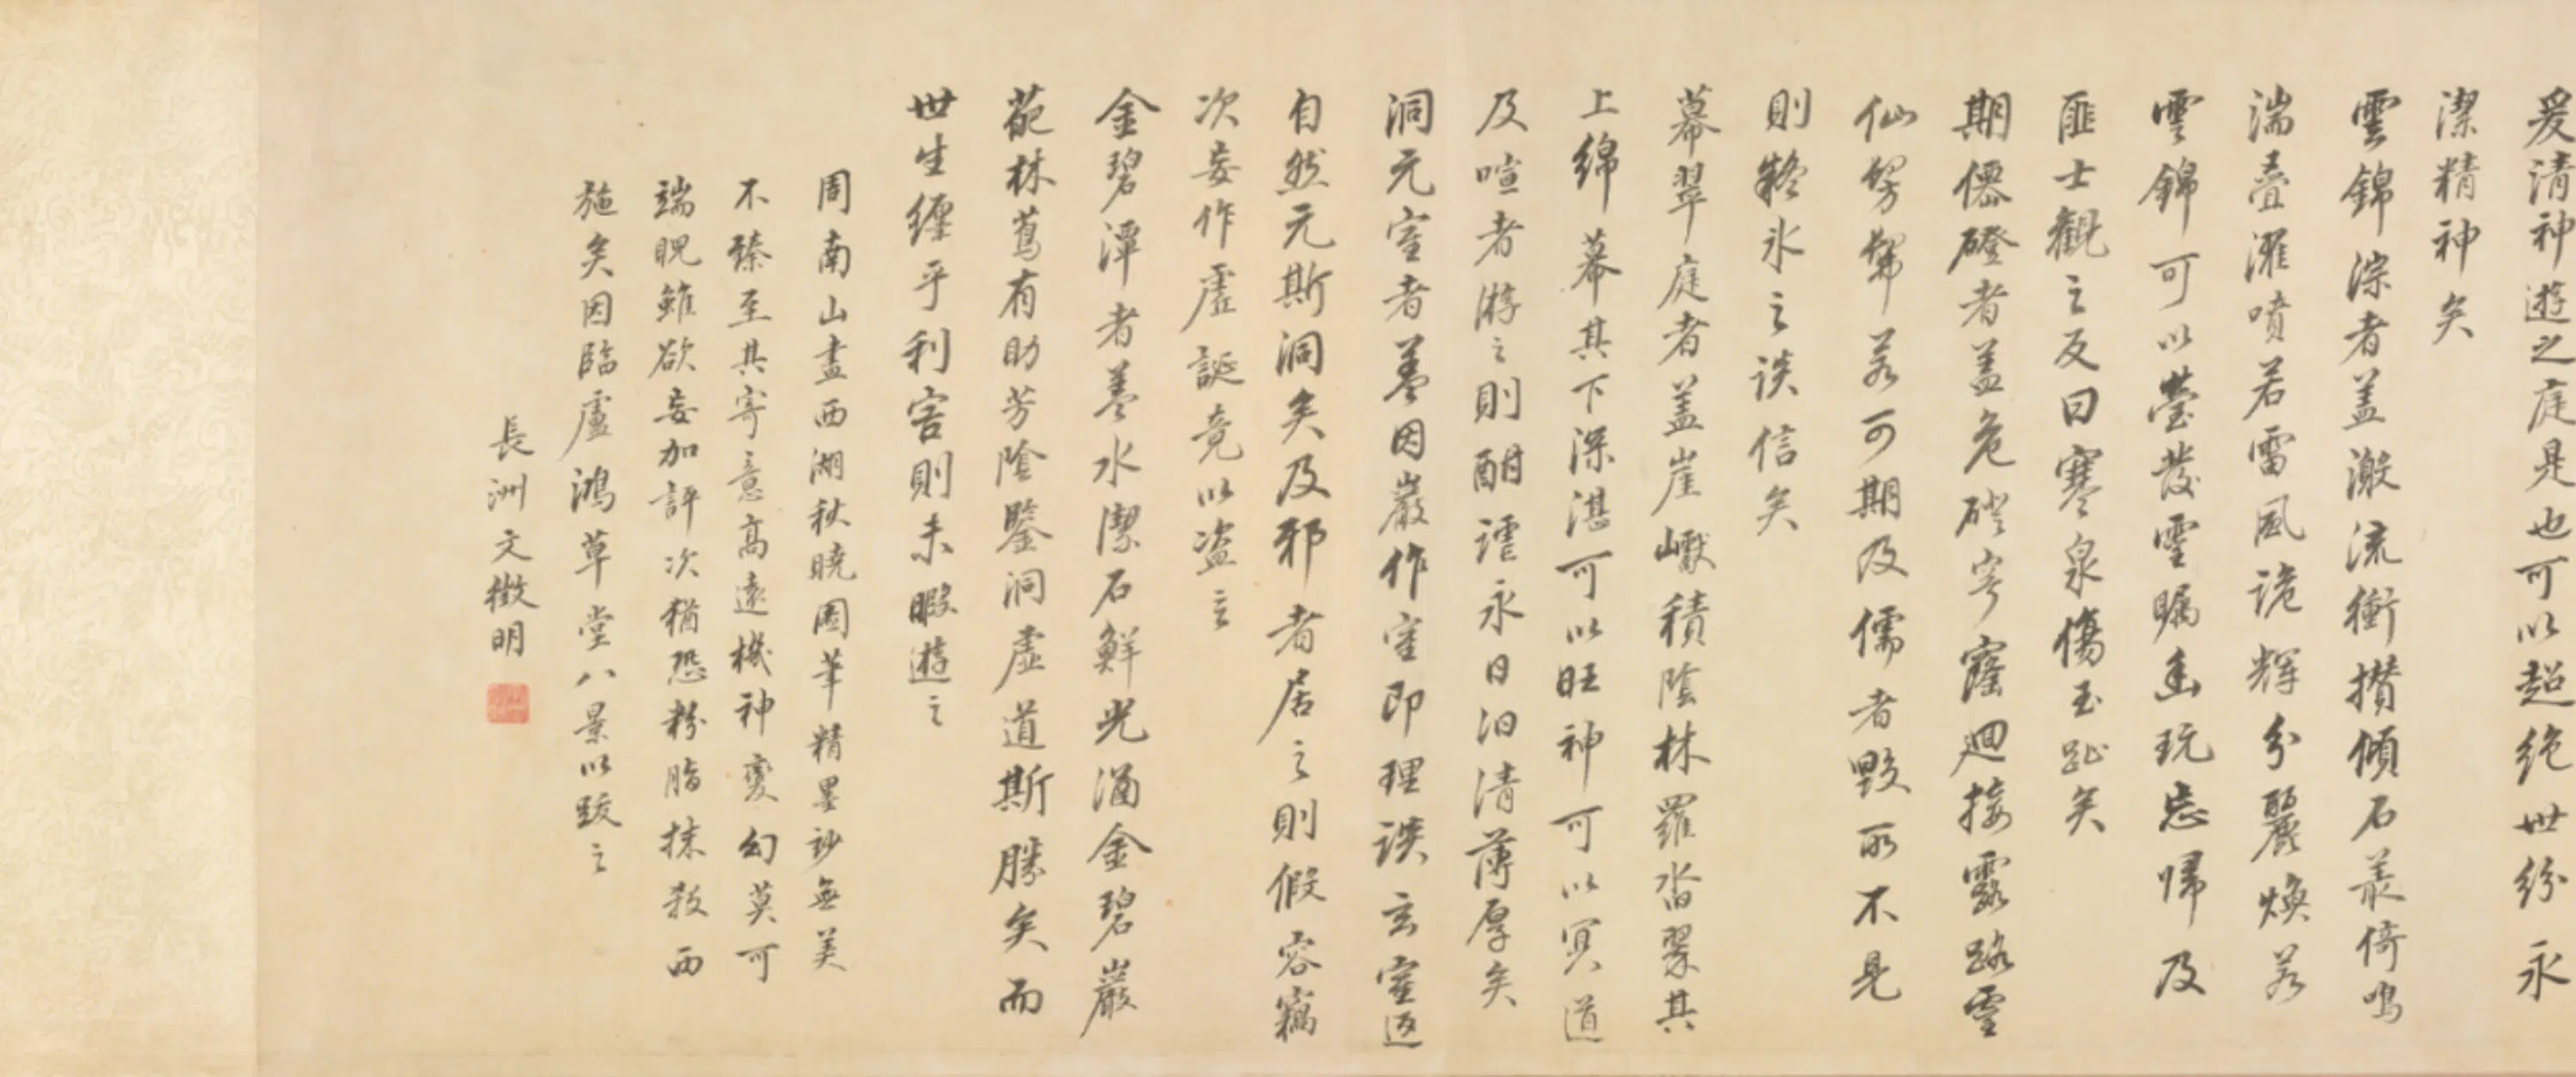 爰清神遊之庭是也可以超絶世紛永
潔精神矣
雲錦淙者蓋激流衝攢傾石叢倚鳴
湍疊濯噴若雷風詭輝分麗煥若
雲錦可以瑩發靈矚幽玩忘歸及
匪士觀之反曰寒泉傷玉趾矣
期僊磴者蓋危磴穹窿迥接露路靈
仙髣髴若可期及儒者毀所不見
則黎氷之談信矣
幕翠庭者蓋崖巘積陰林羅沓翠其
上綿幕其下深湛可以旺神可以冥道
及喧者游之則酣謔永日汨清薄厚矣
洞元室者蓋因巖作室即理談玄室返
自然元斯洞矣及邪者居之則假容竊
次妄作虛誕竟以盜言
金碧潭者蓋水潔石鮮光涵金碧巖
葩林蔦有助芳陰鑒洞虛道斯勝矣而
世生纏乎利害則未暇遊之
周南山畫西湖秋曉圖筆精墨妙無美
不臻至其寄意高遠機神變幻莫可
端睨雖欲妄加評次猶恐粉脂抹殺西
施矣因臨盧鴻草堂八景以跋之
長洲文徵明